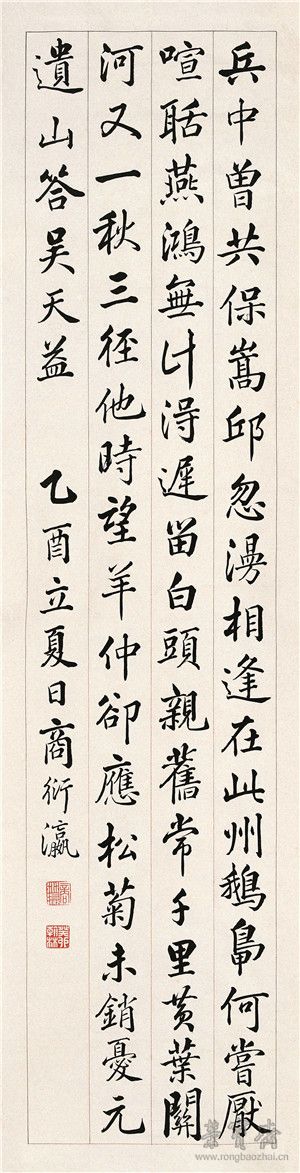 兵中曽共保嵩邱忽漫相逢在此州鵝鳧何嘗厭
喧聒燕鴻無計淂遲留白頭親舊常千里黄葉關
河又一秋三徑他時望羊仲卻應松菊未銷憂元
遺山答吴天益 乙酉立夏日商衍瀛
榮寳齋
www.rongbaozhai.cn